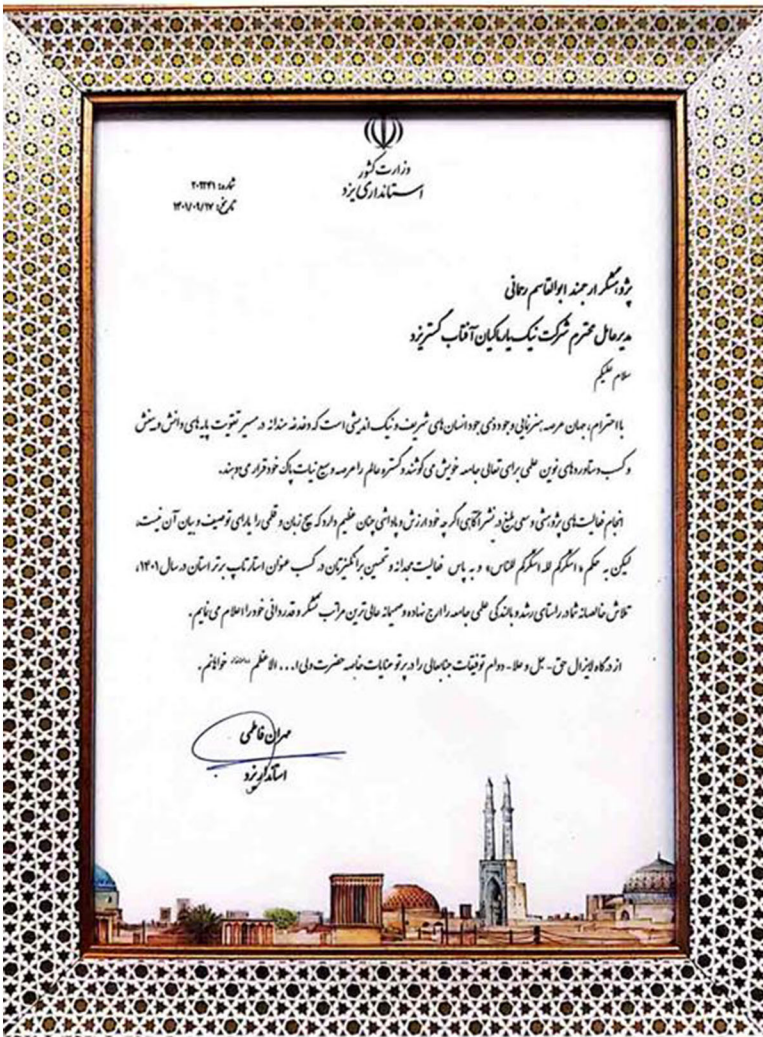 وزارت کشور
استانداری یزد
شماره: ۲۰۲۲۴۱
تاریخ: ۱۴۰۱/۰۹/۱۷
پژوهشگر ارجمند ابوالقاسم رحمانی
مدیرعامل محترم شرکت نیک یار ماکیان آفتاب گستر یزد
سلام علیکم
با احترام، جهان عرصه هنرنمایی وجود ذی جود انسان های شریف و نیک اندیشی است که دغدغه مندانه در مسیر تقویت پایه های دانش و بینش
و کسب دستاوردهای نوین علمی برای تعالی جامعه خویش می کوشند و گستره عالم را عرصه وسیع نیات پاک خود قرار می دهند.
انجام فعالیت های پژوهشی و سعی بلیغ در نشر آگاهی اگر چه خود ارزش و پاداشی چنان عظیم دارد که هیچ زبان و قلمی را یارای توصیف و بیان آن نیست،
لیکن به حکم «اشکرکم لله اشکرکم للناس» و به پاس فعالیت مجدانه و تحسین برانگیزتان در کسب عنوان استارتاپ برتر استان در سال ۱۴۰۱،
تلاش خالصانه شما در راستای رشد و بالندگی علمی جامعه را ارج نهاده و صمیمانه عالی ترین مراتب تشکر و قدردانی خود را اعلام می نمایم.
از درگاه لایزال حق - جل و علا - دوام توفیقات جنابعالی را در پرتو عنایات خاصه حضرت ولی ا... الاعظم خواهانم.
مهران فاطمی
استاندار یزد